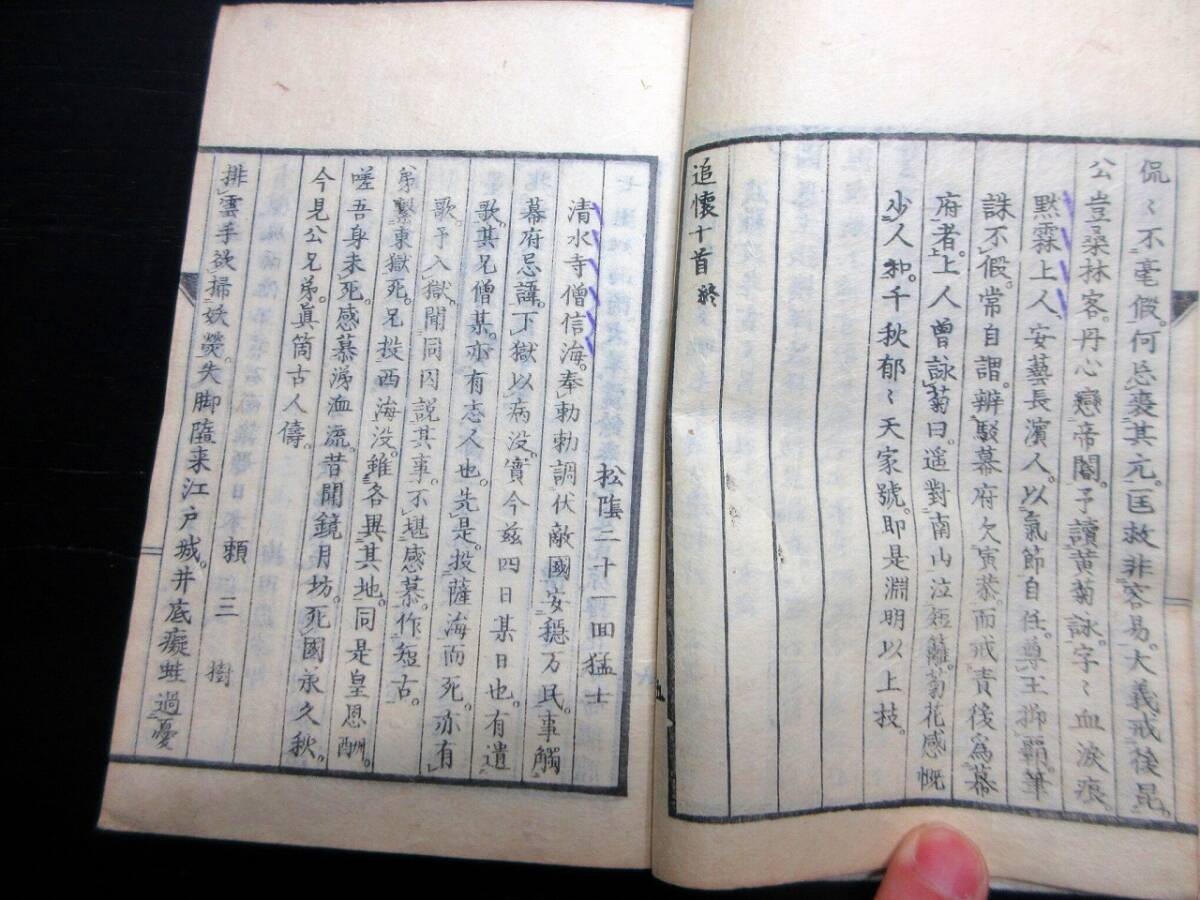 侃〻不毫假。何忍喪其元。匡救非容易。大義戒後昆。
公豈桑林客。丹心戀帝閽。予讀黄菊詠。字〻血淚痕。
黙霖上人、安藝長濱人。以氣節自任。尊王抑覇。筆
誅不假。常自謂。辨駁幕府欠寅恭。而戒責後爲幕
府者。上人曽詠菊曰。遥對南山泣短籬。菊花感慨
少人知。千秋郁〻天家號。即是淵明以上技。
追懷十首終
松陰二十一回猛士
清水寺僧信海。奉勅勅調伏敵國。安穩万民。事觸
幕府忌諱。下獄以病没。實今茲四日某日也。有遺
歌。其兄僧某。亦有志人也。先是。投薩海而死。亦有
歌。予入獄。聞同囚説其事。不堪感慕。作短古。
弟繫東獄死。兄投西海没。雖各異其地。同是皇恩酬。
嗟吾身未死。感慕涕血流。昔聞鏡月坊。死國永久秋。
今見公兄弟。眞箇古人儔。
頼三樹
排雲手欲掃妖熒。失脚墮来江戸城。井底癡蛙過憂